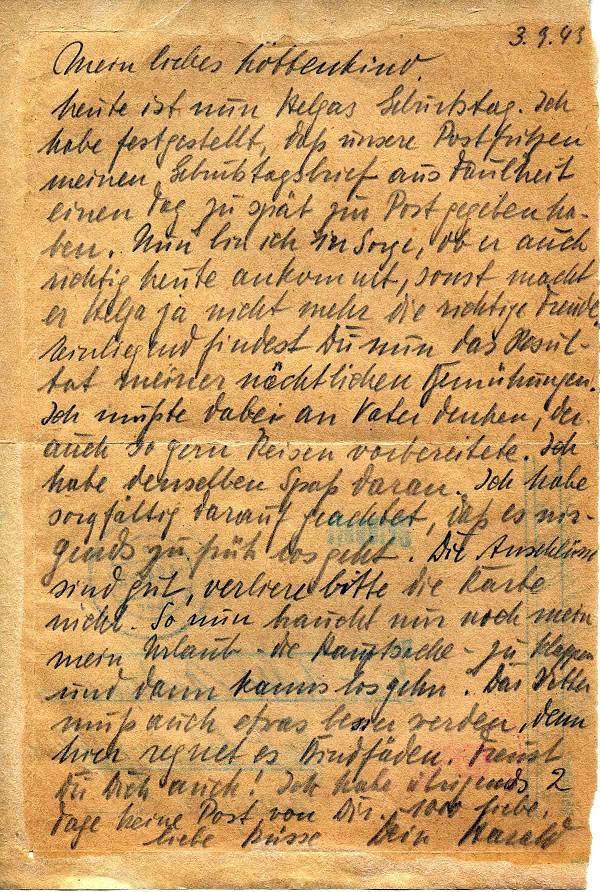 3.9.43
Mein liebes
heute ist nun Helgas Geburtstag. Ich
habe festgestellt, daß unsere Postfritzen
meinen Geburtstagsbrief aus Faulheit
einen Tag zu spät zur Post gegeben ha-
ben. Nun bin ich in Sorge, ob er auch
richtig heute ankommt, sonst macht
er Helga ja nicht mehr die richtige Freude.
Einliegend findest Du nun das Resul-
tat meiner nächtlichen Bemühungen.
Ich mußte dabei an Vater denken, der
auch so gern Reisen vorbereitete. Ich
habe denselben Spaß daran. Ich habe
sorgfältig darauf geachtet, daß es nir-
gends zu früh losgeht. Die Anschlüsse
sind gut, verliere bitte die Karte
nicht. So nun braucht nur noch mein
mein Urlaub - die Hauptsache - zu klappen
und dann kanns losgehn. Das Wetter
muß auch etwas besser werden, denn
hier regnet es Bindfäden. Freust
Du Dich auch! Ich habe übrigens 2
Tage keine Post von Dir. 1000 liebe,
liebe Küsse Dein Harald